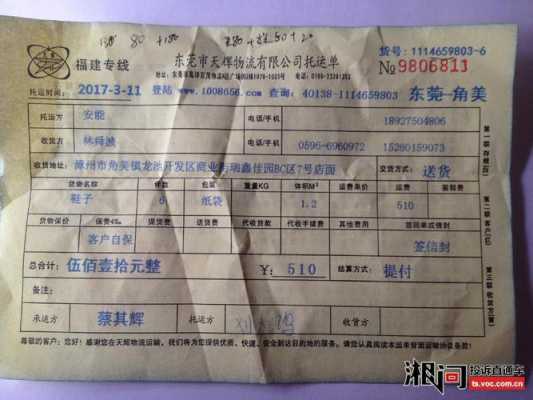 80
福建专线
东莞市天辉物流有限公司托运单
货号:1114659803-6
№9806813
托运时间: 2017-3-11 登陆 www.1008656.com 查询: 40138-1114659803 东莞-角美
托运方 安能 电话/手机 18927504806
收货方 电话/手机 0596-6960972 15260159073
收货地址: 漳州市角美镇龙池开发区商业 瑞鑫佳园BC区7号店面 交货方式: 送货
货物名称 件数 包装 重量KG 体积M³ 运费单价 运费
鞋子 6 纸袋 1.2 510
货物保价 保费4‰ 提货费 送货费 代收货款 代收手续费 其他费用 签回单或信封
客户自保 签信封
总合计: 伍佰壹拾元整 ¥: 510 结算方式: 提付
备注:
承运方 蔡其辉 托运方 收货方
尊敬的客户:您好!感谢您在天辉物流运输,我们将为您提供优质、快速、安全到达目的地的服务,请您认真阅读本运单背面运输协议条款!
湘问 投诉直通车
ts.voc.com.cn